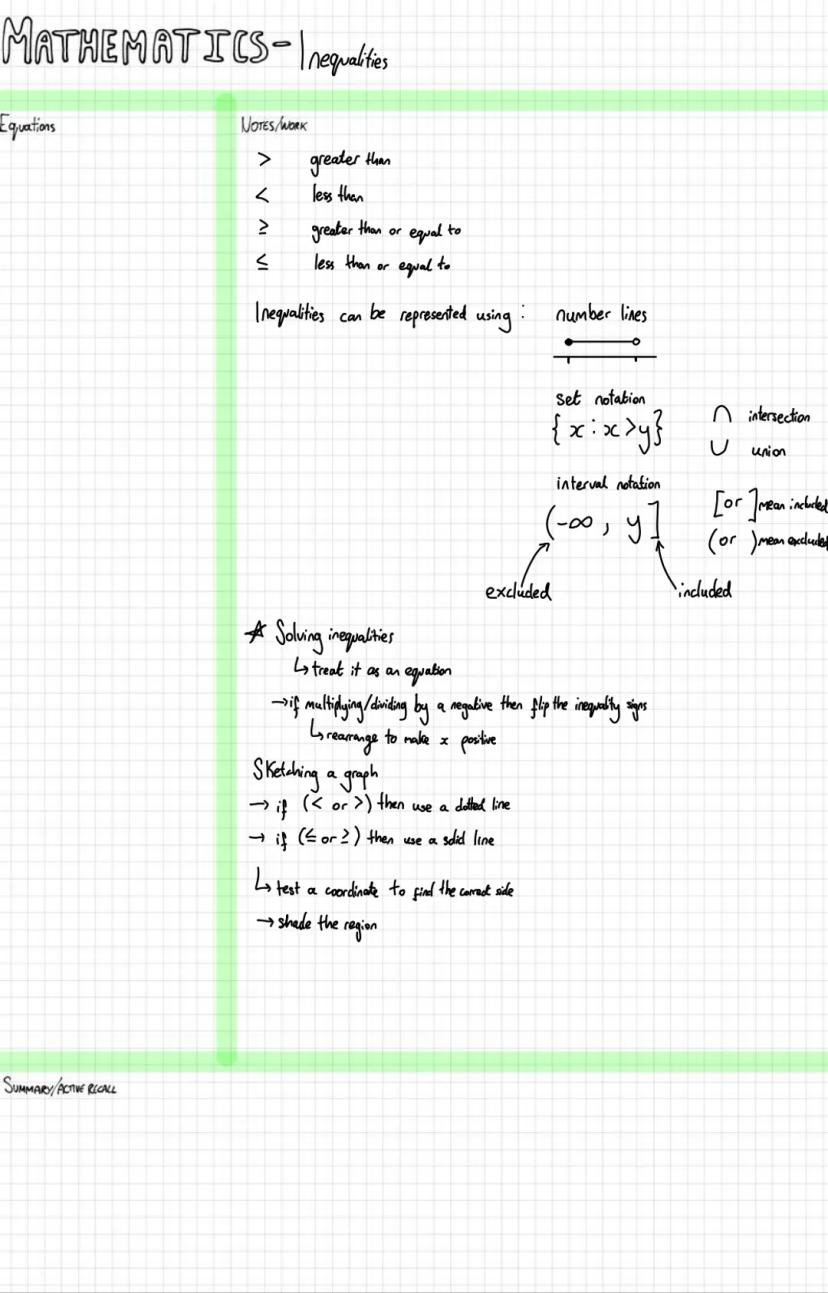 MATHEMATICS - Inequalities
Equations
NOTES/WORK
> greater than
< less than
≥ greater than or equal to
≤ less than or equal to
Inequalities can be represented using : number lines
set notation
{ x : x > y }
∩ intersection
∪ union
interval notation
(-∞ , y ]
[ or ] mean included
( or ) mean excluded
excluded
included
Solving inequalities
↳ treat it as an equation
→ if multiplying/dividing by a negative then flip the inequality signs
↳ rearrange to make x positive
Sketching a graph
→ if (< or >) then use a dotted line
→ if (≤ or ≥) then use a solid line
↳ test a coordinate to find the correct side
→ shade the region
SUMMARY/ACTIVE RECALL